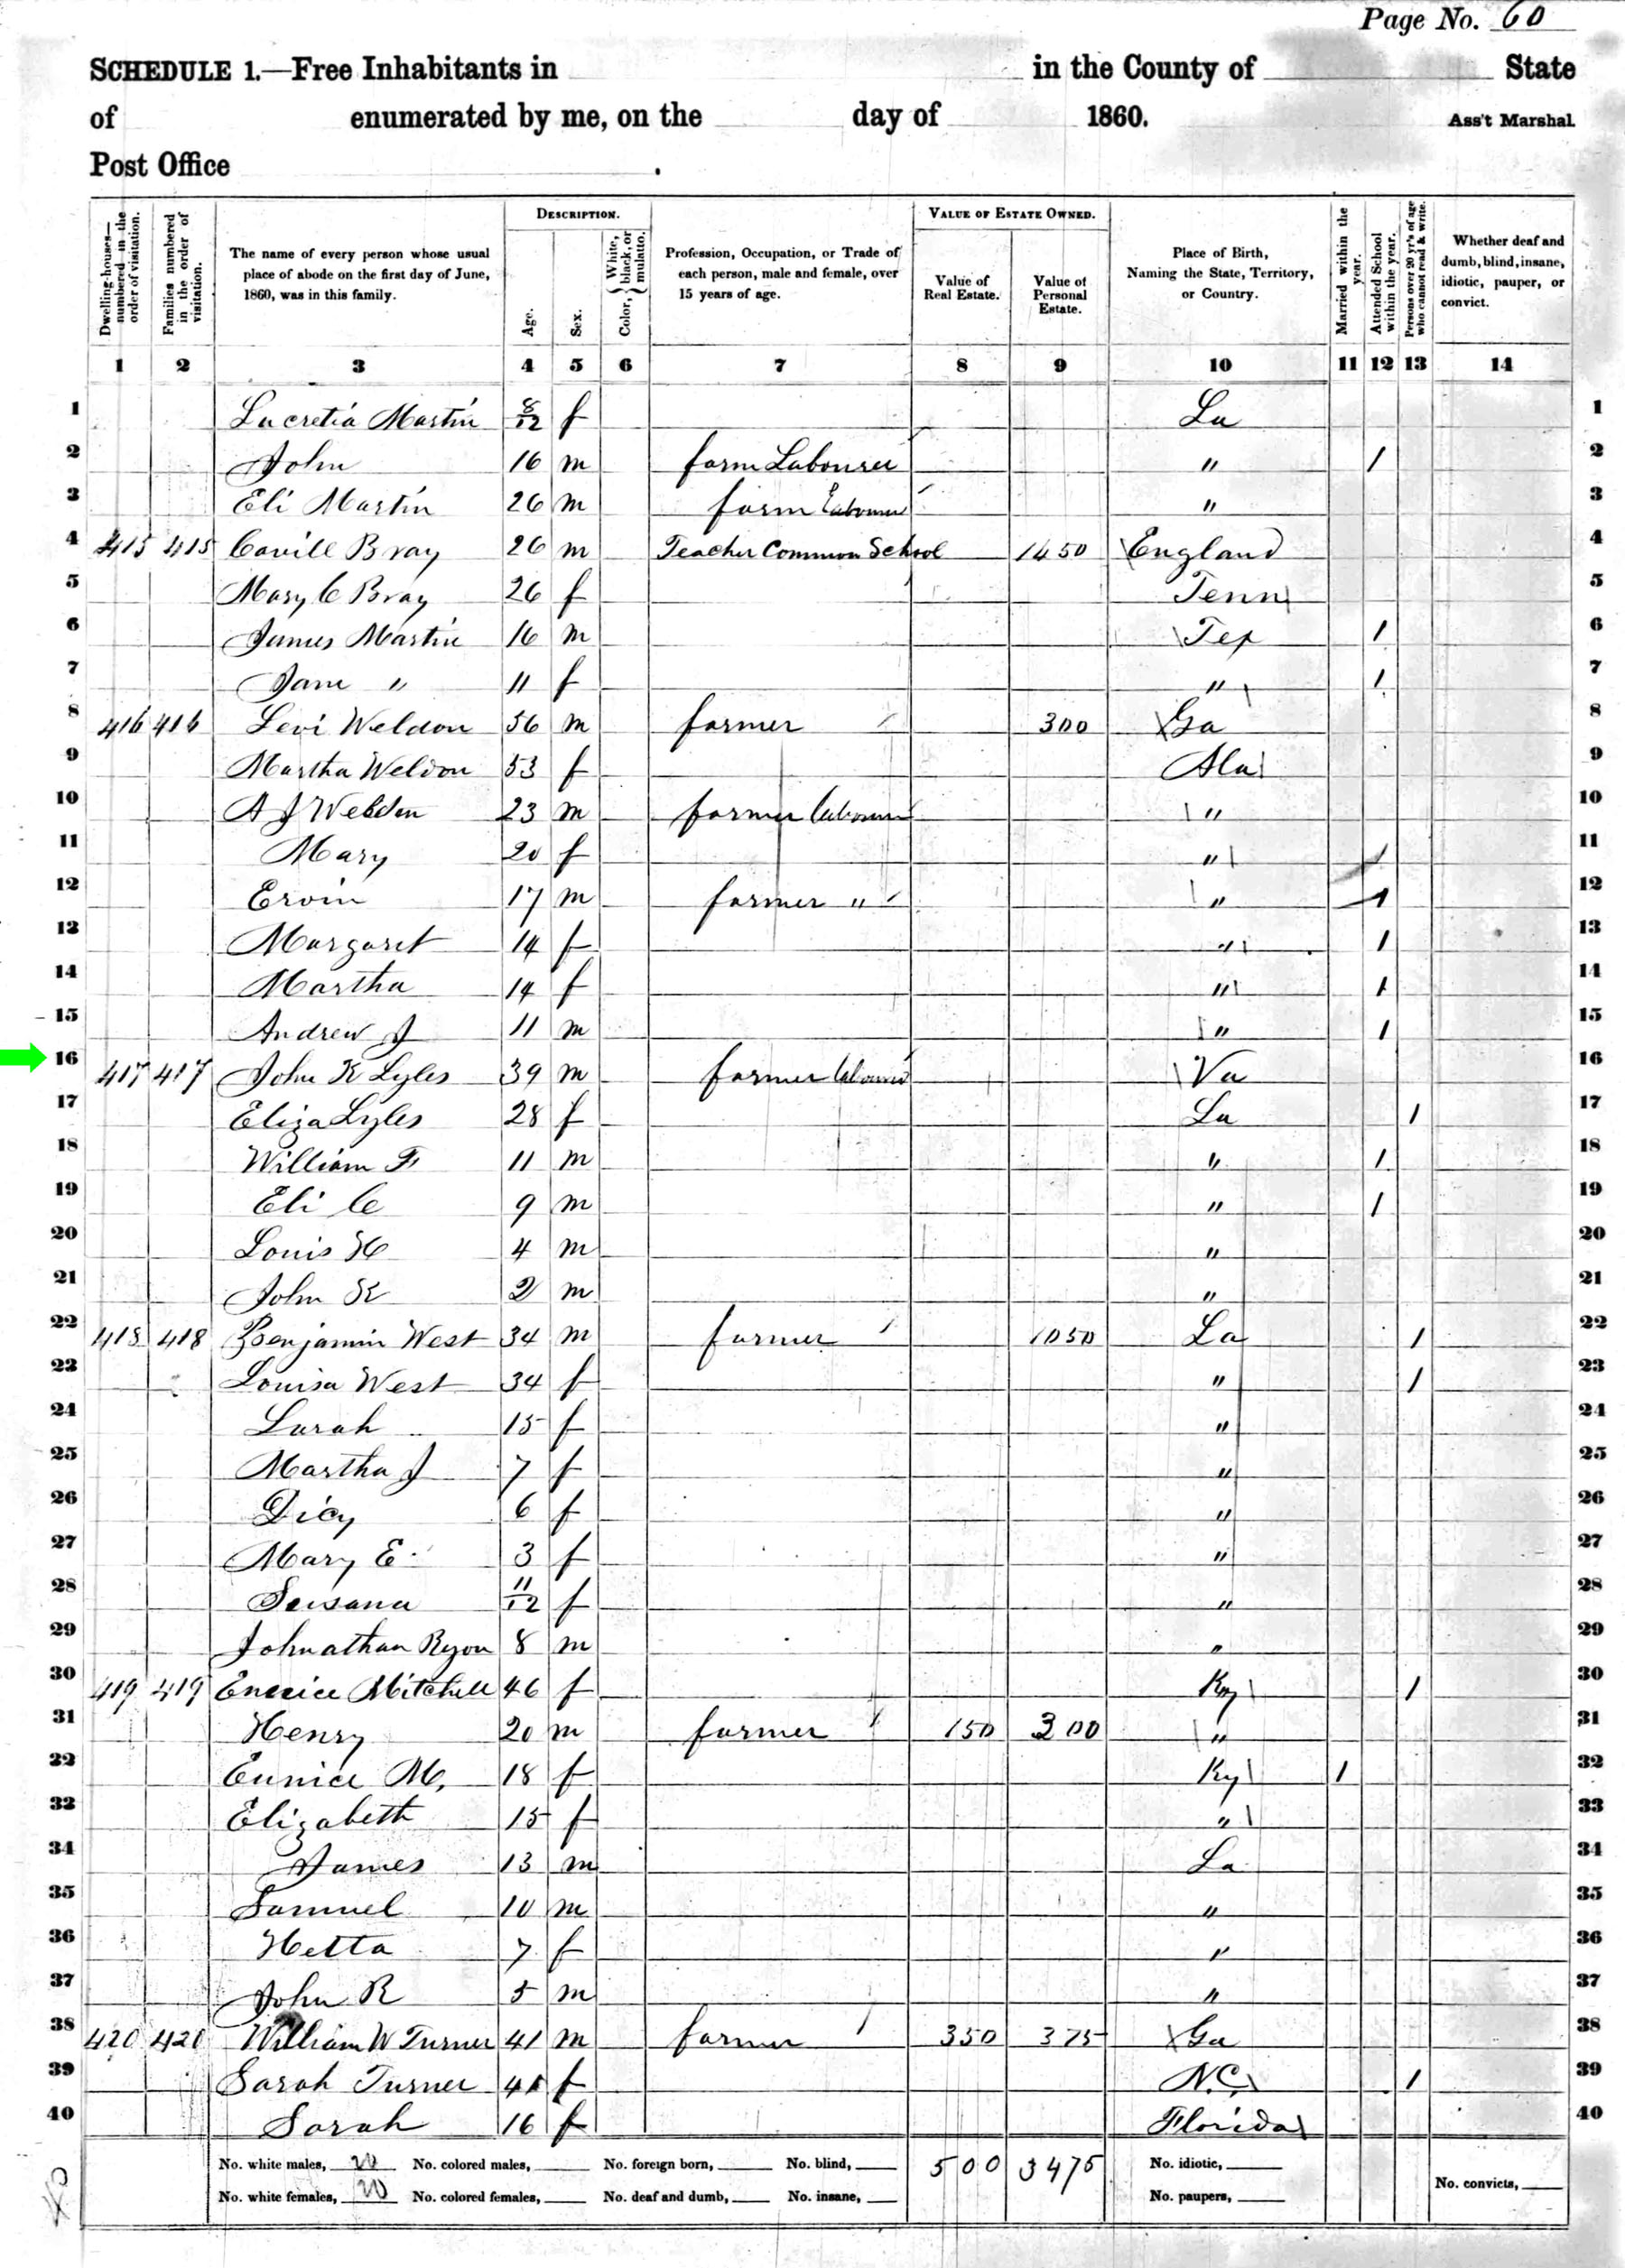 Page No. 60
SCHEDULE 1.—Free Inhabitants in in the County of State
of enumerated by me, on the day of 1860. Ass't Marshal.
Post Office .
Dwelling-houses— numbered in the order of visitation.
Families numbered in the order of visitation.
The name of every person whose usual place of abode on the first day of June, 1860, was in this family.
DESCRIPTION.
Age.
Sex.
Color, { White, black, or mulatto.
Profession, Occupation, or Trade of each person, male and female, over 15 years of age.
VALUE OF ESTATE OWNED.
Value of Real Estate.
Value of Personal Estate.
Place of Birth, Naming the State, Territory, or Country.
Married within the year.
Attended School within the year.
Persons over 20 yr's of age who cannot read & write.
Whether deaf and dumb, blind, insane, idiotic, pauper, or convict.
1 2 3 4 5 6 7 8 9 10 11 12 13 14
1 Lucretia Martin 8/12 f La 1
2 John 16 m farm Labourer " / 2
3 Eli Martin 26 m farm Labourer " 3
4 415 415 Cavill Bray 26 m Teacher Common School 1450 England 4
5 Mary C Bray 26 f Tenn 5
6 James Martin 16 m Tex / 6
7 Jane " 11 f " / 7
8 416 416 Levi Weldon 56 m farmer 300 Ga 8
9 Martha Weldon 53 f Ala 9
10 A J Weldon 23 m farmer labourer " 10
11 Mary 20 f " / 11
12 Ervin 17 m farmer " " / 12
13 Margaret 14 f " / 13
14 Martha 14 f " / 14
15 Andrew J 11 m " / 15
16 417 417 John K Lyles 39 m farmer labourer Va 16
17 Eliza Lyles 28 f La / 17
18 William F 11 m " / 18
19 Eli C 9 m " / 19
20 Louis H 4 m " 20
21 John K 2 m " 21
22 418 418 Benjamin West 34 m farmer 1050 La / 22
23 Louisa West 34 f " / 23
24 Sarah 15 f " 24
25 Martha J 7 f " 25
26 Dicy 6 f " 26
27 Mary E 3 f " 27
28 Susana 11/12 f " 28
29 Johnathan Ryon 8 m " 29
30 419 419 Eunice Mitchell 46 f Ky / 30
31 Henry 20 m farmer 150 300 " 31
32 Eunice M, 18 f Ky / 32
33 Elizabeth 15 f " 33
34 James 13 m La 34
35 Samuel 10 m " 35
36 Hetta 7 f " 36
37 John R 5 m " 37
38 420 420 William W Turner 41 m farmer 350 375 Ga 38
39 Sarah Turner 41 f N.C. / 39
40 Sarah 16 f Florida 40
No. white males, 20 No. colored males, No. foreign born, No. blind, 500 3475 No. idiotic,
No. white females, 20 No. colored females, No. deaf and dumb, No. insane, No. paupers, No. convicts,